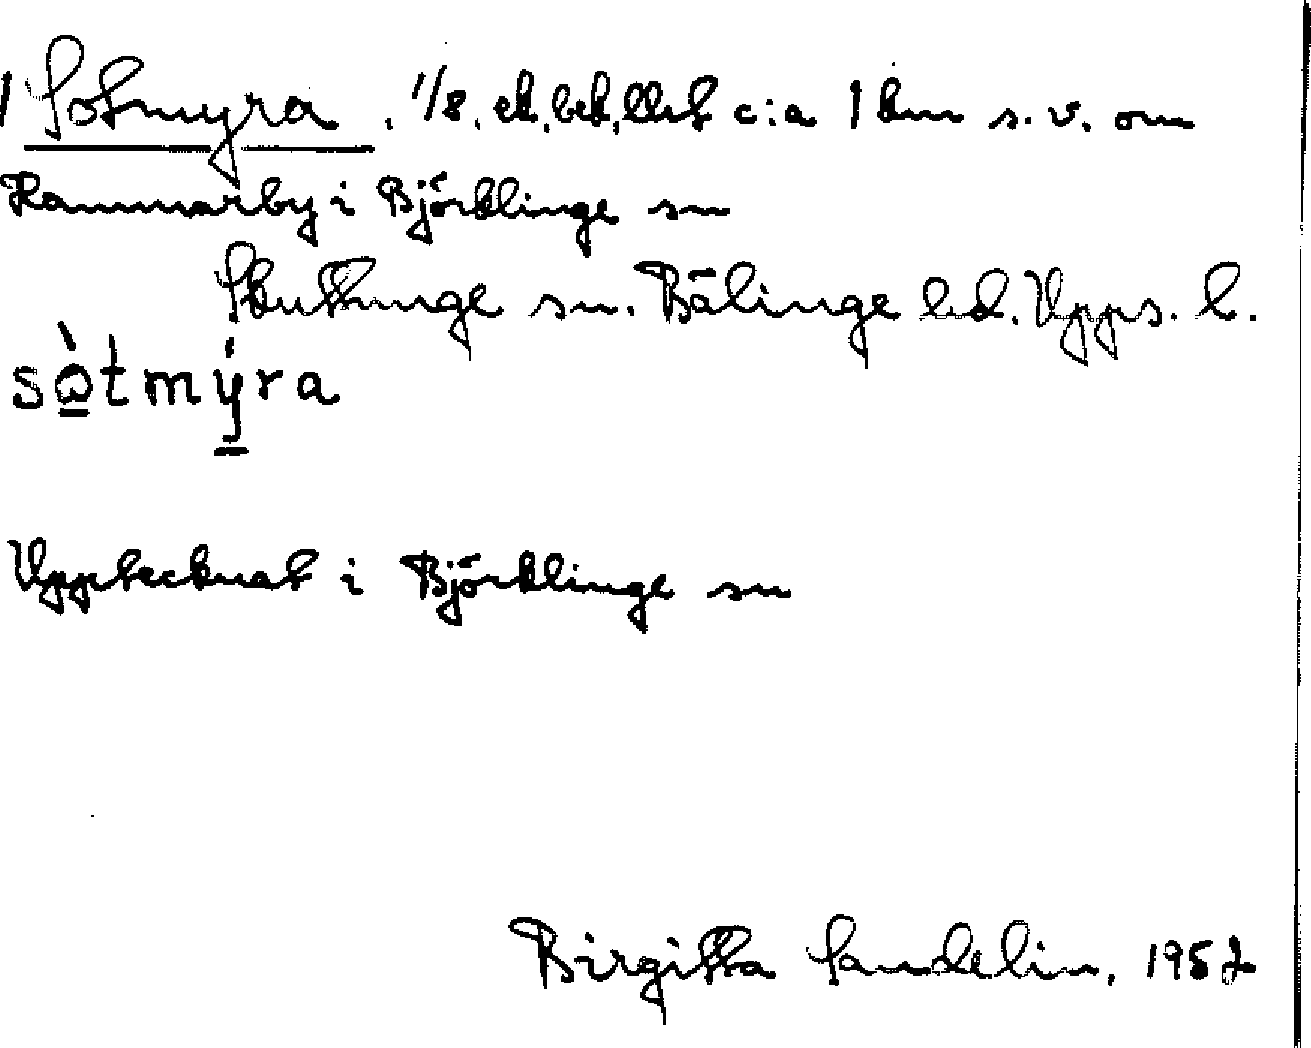 Sotmyra. 1/8. ek. bek. llet c:a 1 km s. v. om
Rammarby i Björklinge sn
Skuttunge sn. Bälinge hd. Upps. l.
sòtmýra
Upptecknat i Björklinge sn
Birgitta Sandelin, 1952